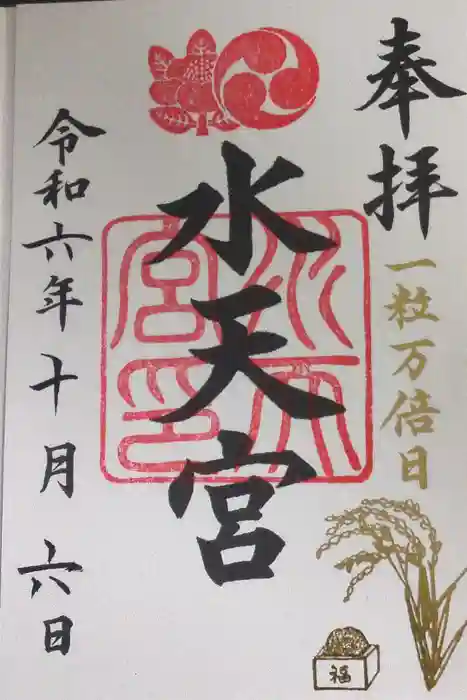 奉拝
一粒万倍日
水天宮
水天宮印
令和六年十月六日
福